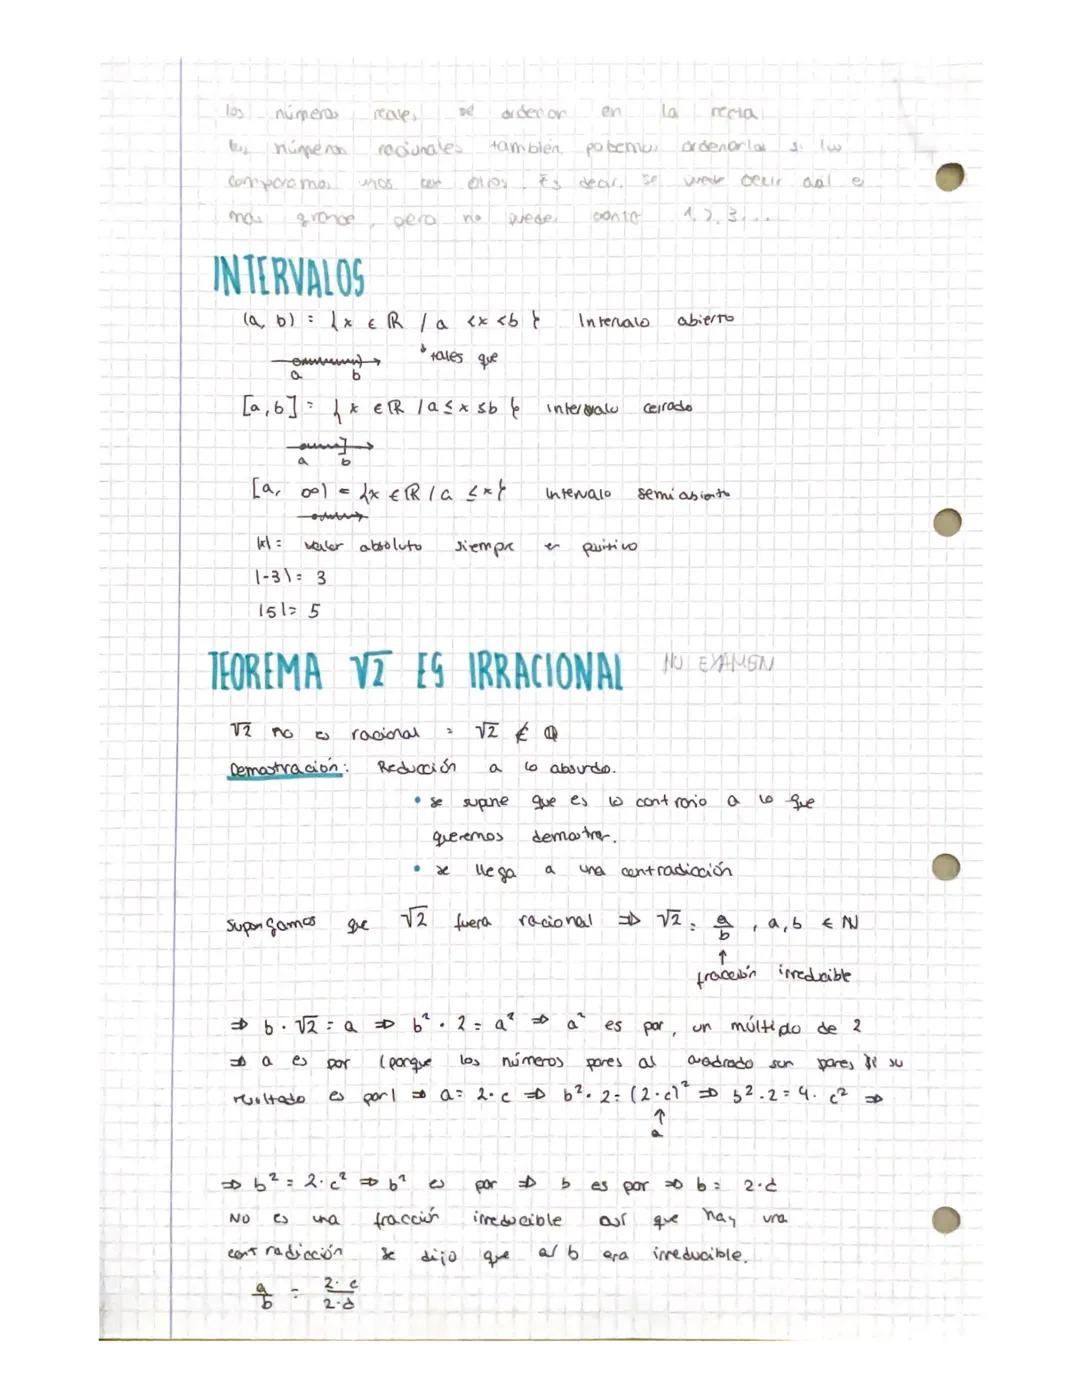 los números reales se ordenan en la recta
los números racionales también podemos ordenarlos si los
comparamos unos con otros. Es decir, se puede decir cual es
más grande, pero no puede contar 1, 2, 3, ...
INTERVALOS
(a, b) = {x ∈ ℝ / a < x < b} Intervalo abierto
↓ tales que
a b
[a, b] = {x ∈ ℝ / a ≤ x ≤ b} intervalo cerrado
a b
[a, ∞) = {x ∈ ℝ / a ≤ x} Intervalo semiabierto
|x| = valor absoluto siempre es positivo
|-3| = 3
|5| = 5
TEOREMA √2 ES IRRACIONAL NO EXAMEN
√2 no es racional = √2 ∉ ℚ
Demostración: Reducción a lo absurdo.
• se supone que es lo contrario a lo que
queremos demostrar.
• se llega a una contradicción
Supongamos que √2 fuera racional ⇒ √2 = a/b, a, b ∈ ℕ
↑
fracción irreducible
⇒ b · √2 = a ⇒ b² · 2 = a² ⇒ a² es par, un múltiplo de 2
⇒ a es par (porque los números pares al cuadrado son pares si su
resultado es par) ⇒ a = 2 · c ⇒ b² · 2 = (2 · c)² ⇒ b² · 2 = 4 · c² ⇒
↑
a
⇒ b² = 2 · c² ⇒ b² es par ⇒ b es par ⇒ b = 2 · d
No es una fracción irreducible así que hay una
contradicción se dijo que a/b era irreducible.
a/b = 2 · c / 2 · d